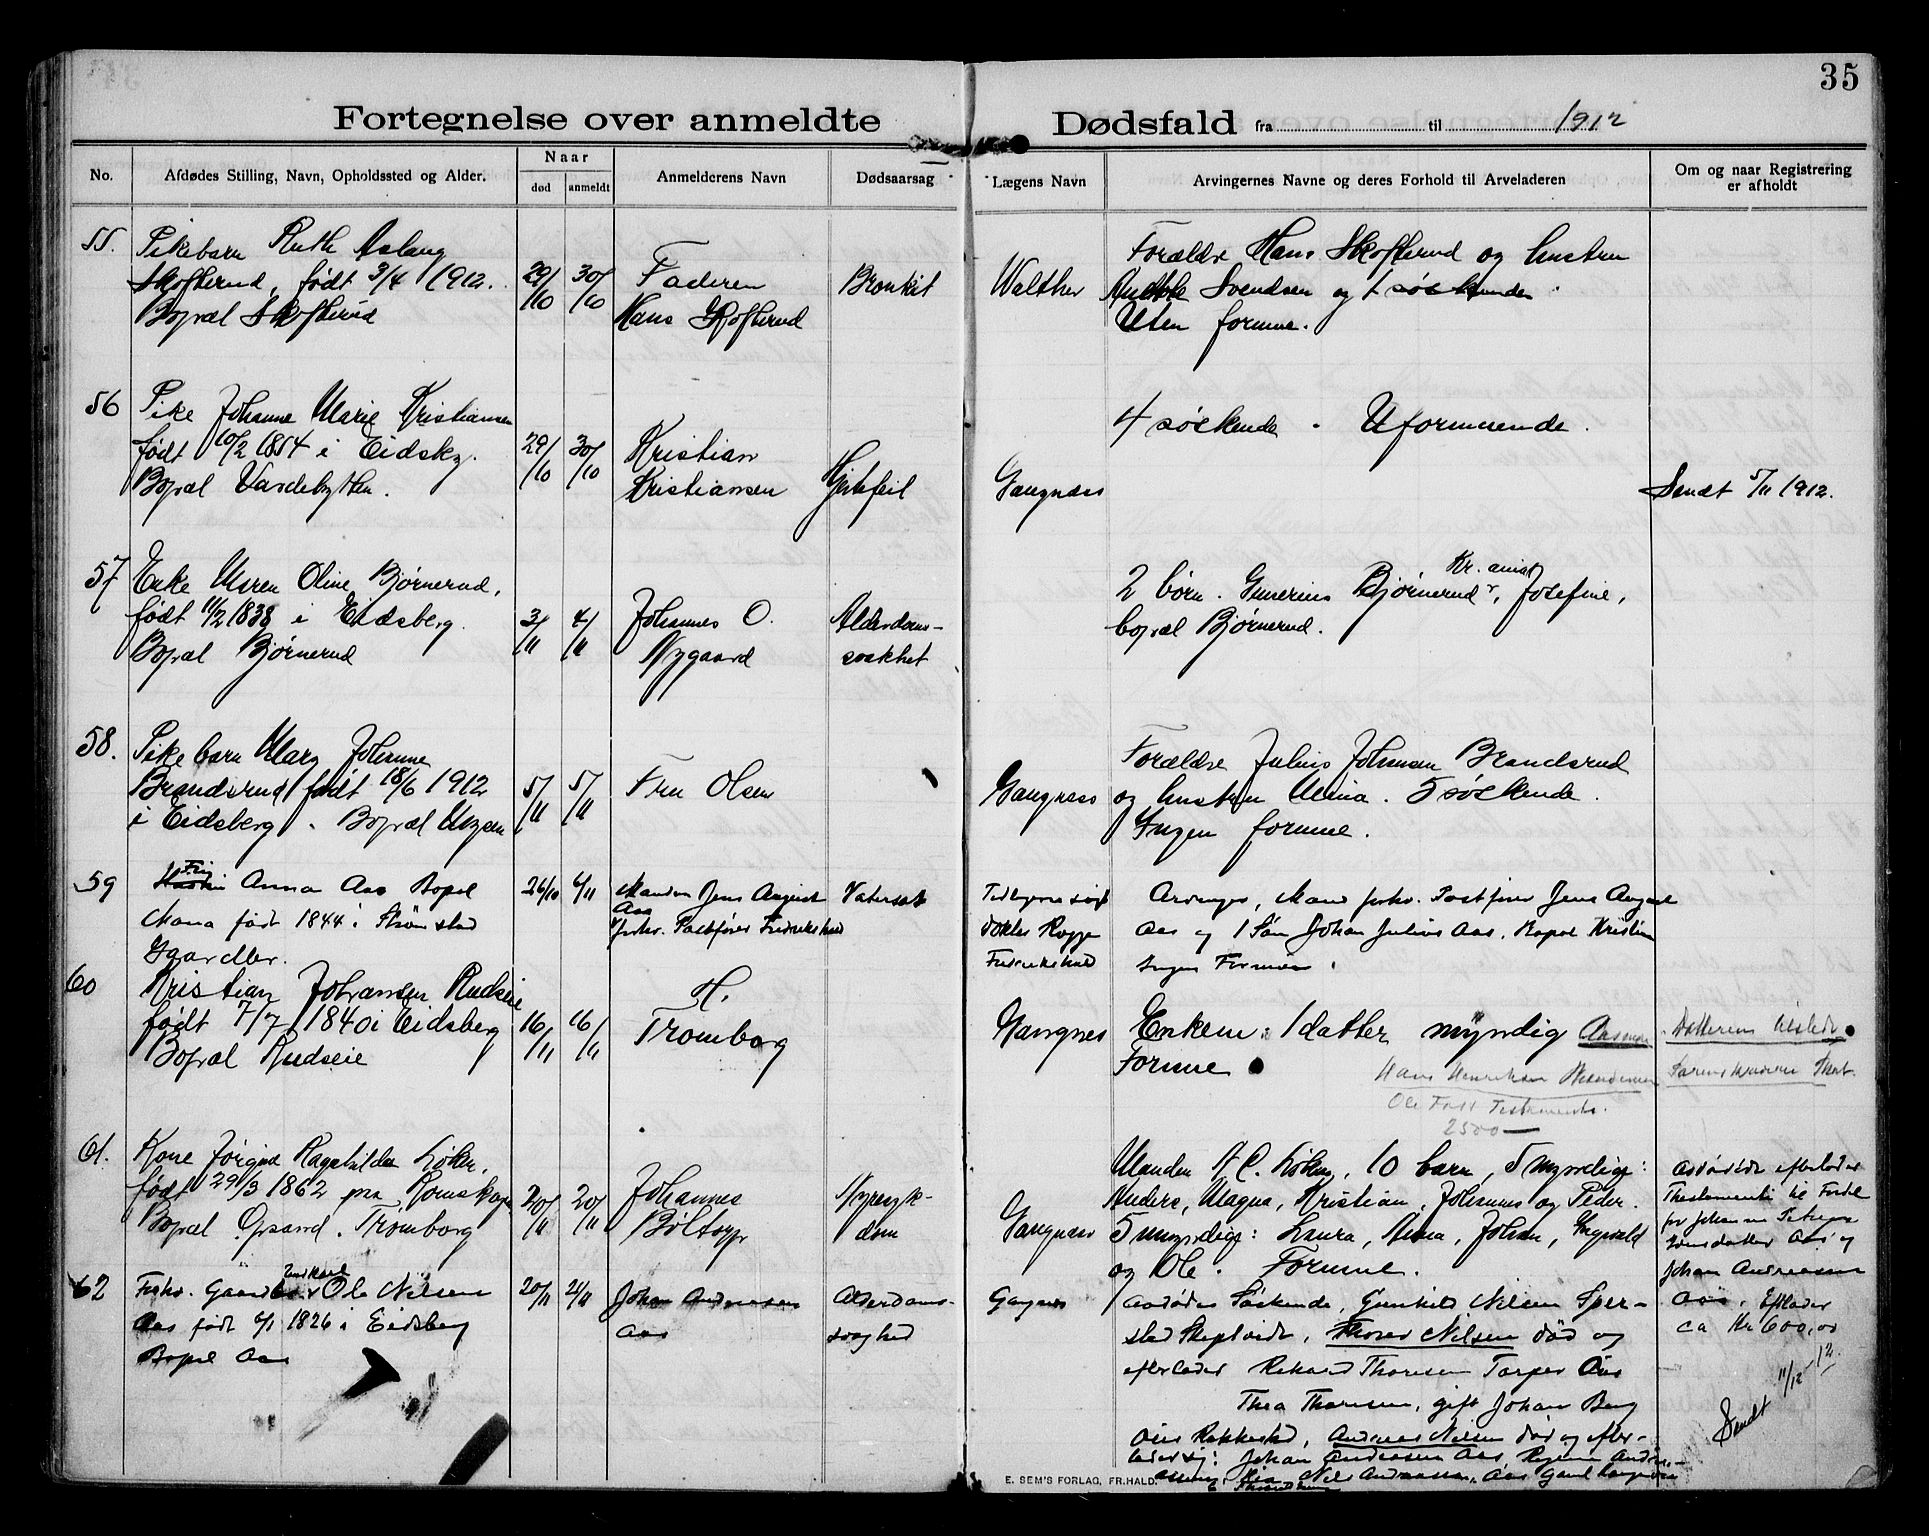 35
Fortegnelse over anmeldte Dødsfald fra til 1912
No.
Afdødes Stilling, Navn, Opholdssted og Alder.
Naar
død
anmeldt
Anmelderens Navn
Dødsaarsag
Lægens Navn
Arvingernes Navne og deres Forhold til Arveladeren
Om og naar Registrering
er afholdt
55.
Pikebarn Ruth Aslaug
Skofterud, født 3/4 1912.
Bopæl Skofterud
29/10
30/10
Faderen
Hans Skofterud
Bronkit
Walther
Forældre Hans Skofterud og hustru
Svendsen og 1 søskende.
Uten formue.
56
Pike Johanne Marie Kristiansen
født 10/2 1854 i Eidsbg.
Bopæl Vardebytten.
29/10
30/10
Kristian
Kristiansen
Hjertefeil
Gangnæss
4 søskende. Uformuende.
Sendt 5/11 1912.
57
Enke Maren Oline Bjørnerud,
født 11/2 1838 i Eidsberg.
Bopæl Bjørnerud
3/11
4/11
Johannes O.
Nygaard
Alderdoms-
svakhet
Kr. ania
2 børn. Gunerius Bjørnerud, Josefine,
bopæl Bjørnerud.
58.
Pikebarn Mary Johanne
Brandsrud født 18/6 1912
i Eidsberg. Bopæl Mysen
5/11
5/11
Fru Olsen
Gangnæss
Forældre Julius Johansen Brandsrud
og hustru Mina. 5 søskende.
Ingen formue.
59
Anna Aas Bopæl
Mona født 1844 i Strømstad
26/10
6/11
Manden Jens August
Aas
forhv. Postfører Fredrikshald
Vatersot
Doktor Rogge
Fredrikshald
Arvinger, Mand forhv. Postfører Jens August
Aas og 1 Søn Johan Julius Aas, Bopæl Kristiania
Ingen Formue.
60
Kristian Johansen Rudseie
født 7/7 1840 i Eidsberg
Bopæl Rudseie
16/11
16/11
H.
Tromborg
Gangnes
Enken: 1 datter myndig
Formue
Hans Henriksen
Ole Foss Testamente.
2500 —
61.
Kone Jørgine Ragnhilda Løken,
født 29/3 1862 pra Rømskogen
Bopæl Opsand. Tromborg
20/11
20/11
Johannes
Böltorp
Nyresyk-
dom
Gangnæss
Manden A. C. Løken, 10 barn, 5 myndige:
Anders, Magna, Kristian, Johannes og Peder.
5 umyndige: Laura, Anna, Johan, Ingvald
og Ole. Formue.
62
Forhv. Gaardbr. Ole Nilsen
Aas født 6/1 1826 i Eidsberg
Bopæl Aas
20/11
21/11
Johan Andreasen
Aas
Alderdoms-
svaghed
Gangnes
Avdødes Søskende, Gunhild Nilsen Sper-
stad Skiptvedt, Thorer Nilsen død og
efterlader Rikard Thoresen Torper Aas
Thea Thoresen, gift Johan Berg
Rakkestad, Andreas Nilsen død og efter-
lader sig: Johan Andreassen Aas
Nils Andreassen, Aas
avdøde efterlader
Thestamenti til Fordel
for Johanne Petrine
Aas og
Johan Andreassen
Aas. Efterlader
ca Kr 600,00
Sendt 11/12 12.
E. SEM'S FORLAG, FR.HALD.